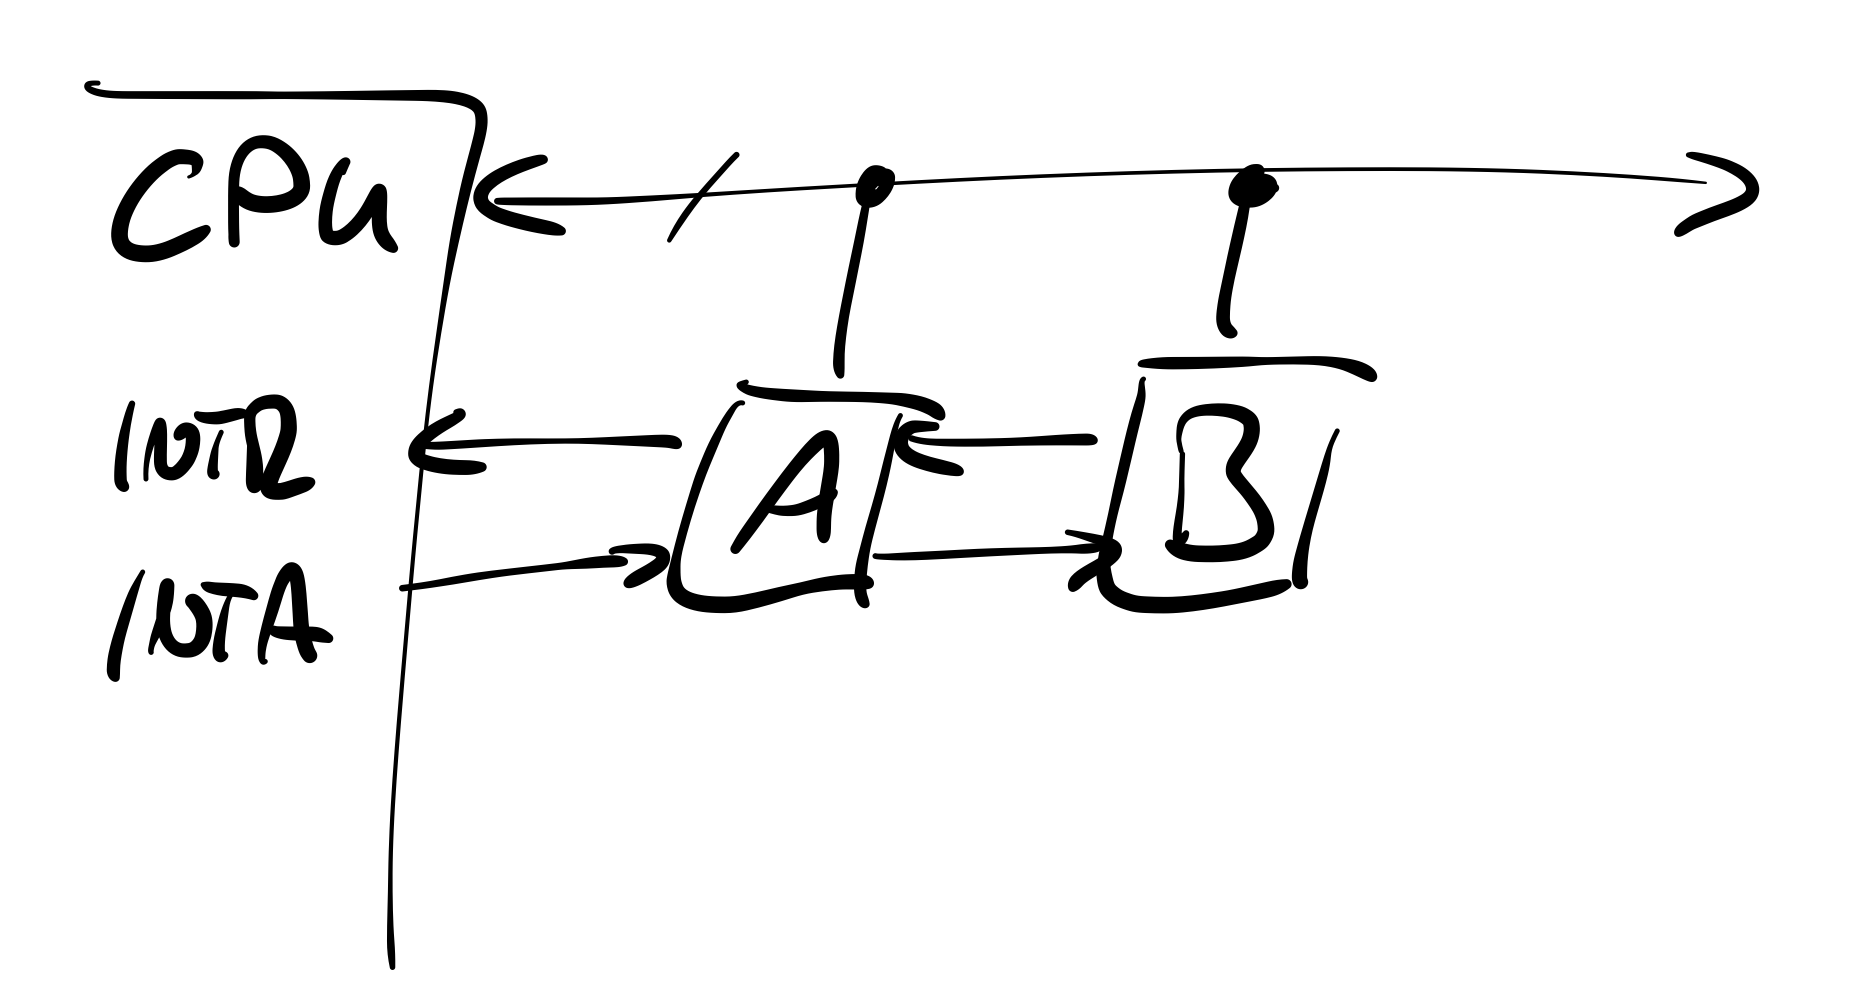 CPU
INTR
INTA
A
B